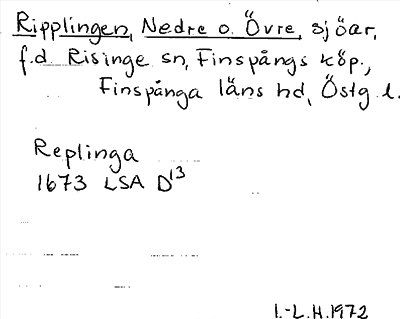 Ripplingen, Nedre o. Övre, sjöar,
f.d. Risinge sn, Finspångs köp.,
Finspånga läns hd, Östg l.
Replinga
1673 LSA D13
I.-L.H.1972